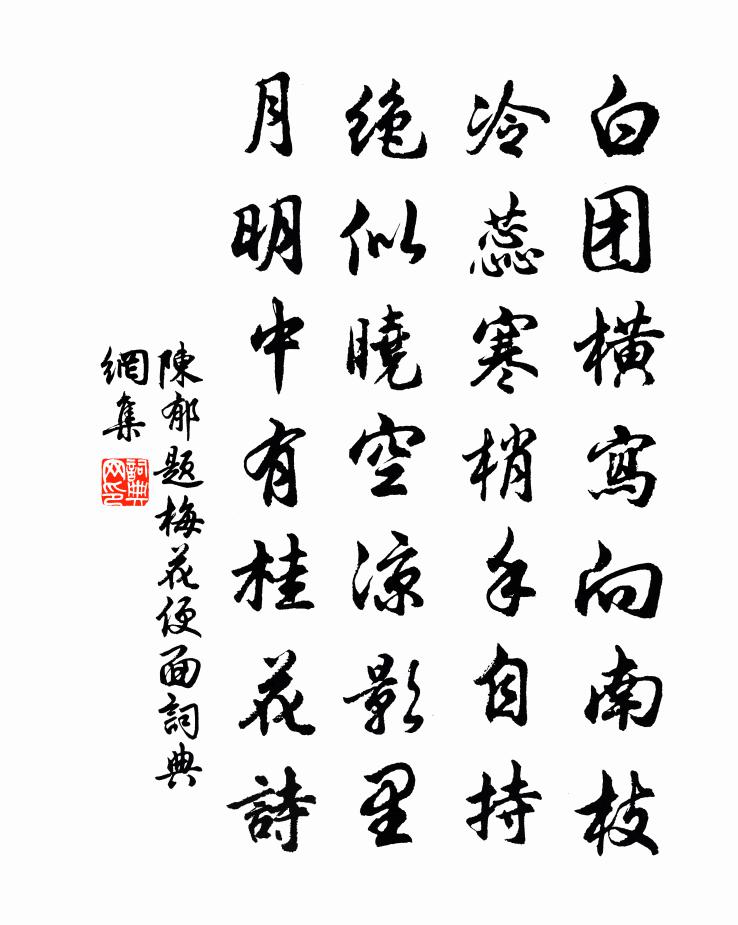 白团横寫向南枝
冷蕊寒梢手自持
绝似曉空凉影里
月明中有桂花詩
陳郁题梅花便面詞典
網集
詞典网印